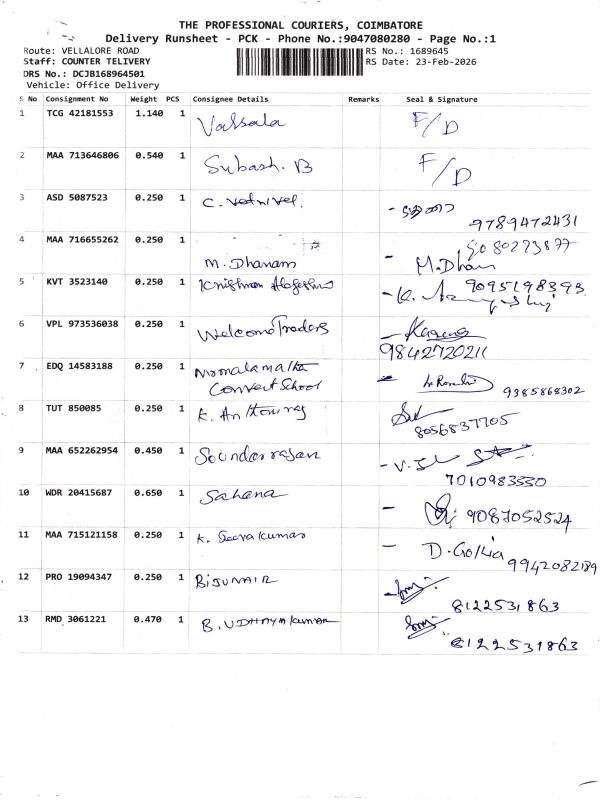 THE PROFESSIONAL COURIERS, COIMBATORE
Delivery Runsheet - PCK - Phone No.:9047080280 - Page No.:1
Route: VELLALORE ROAD
RS No.: 1689645
Staff: COUNTER TELIVERY
RS Date: 23-Feb-2026
DRS No.: DCJB168964501
Vehicle: Office Delivery
S No Consignment No Weight PCS Consignee Details Remarks Seal & Signature
1 TCG 42181553 1.140 1 Valsala F/D
2 MAA 713646806 0.540 1 Subash. B F/D
3 ASD 5087523 0.250 1 C. Vetrivel.
9789472431
4 MAA 716655262 0.250 1 M. Dhanam M.Dhan
5 KVT 3523140 0.250 1 Krishnan 9095198393
6 VPL 973536038 0.250 1 Welcome Traders
9842720211
7 EDQ 14583188 0.250 1 Nirmalamatha
Convert School 9385868302
8 TUT 850085 0.250 1 K. Anthonyraj
8056837705
9 MAA 652262954 0.450 1 Soundarrajan
7010983330
10 WDR 20415687 0.650 1 Sahana 9087052524
11 MAA 715121158 0.250 1 K. Seerakumar D. Gokila
9942082189
12 PRO 19094347 0.250 1 BIJUNAIR
8122531863
13 RMD 3061221 0.470 1 B. UDHAYAKUMAR
8122531863